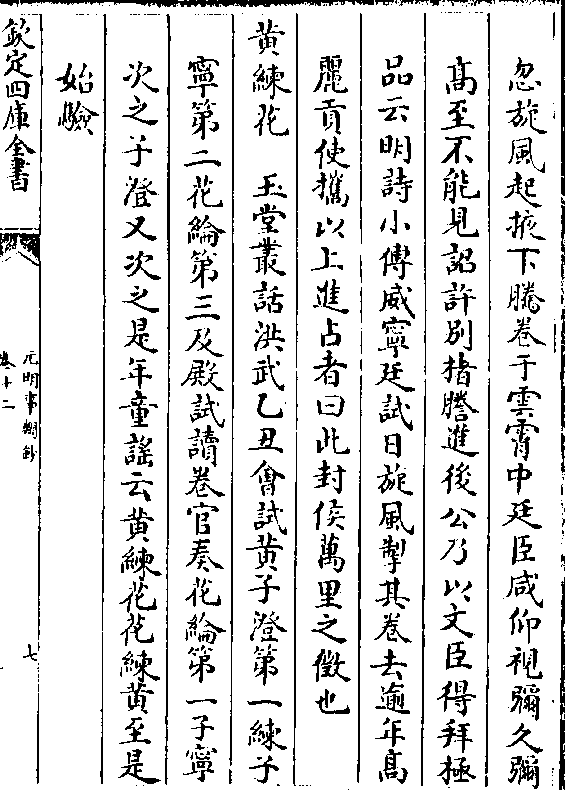 忽旋風起掖下騰卷于雲霄中廷臣咸仰視彌久彌
髙至不能見詔許别楮謄進後公乃以文臣得拜極
品云明詩小傳威寧廷試日旋風掣其卷去逾年髙
麗貢使攜以上進占者曰此封侯萬里之徵也
黄練花　玉堂叢話洪武乙丑㑹試黄子澄第一練子
寧第二花綸第三及殿試讀卷官奏花綸第一子寧
次之子澄又次之是年童謡云黄練花花練黄至是
始驗
欽定四庫全書
元明事類鈔
卷十二
七